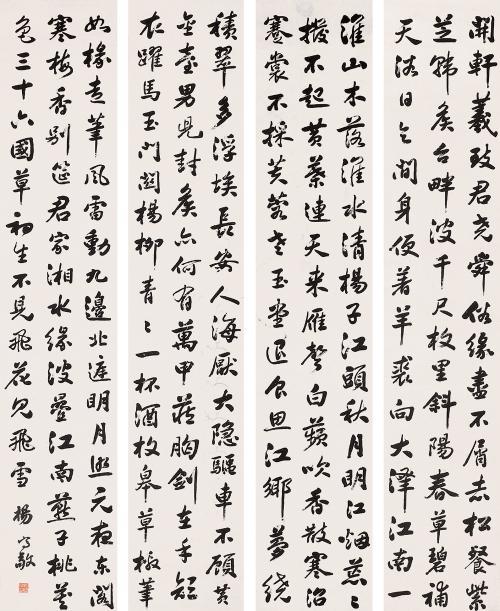 開軒羲致君堯舜俗緣盡不屑赤松餐紫
芝歸矣台畔波千尺枚里斜陽春草碧補
天浴日乞閒身便著羊裘向大澤江南一
淮山木落淮水清楊子江頭秋月明江烟蒸〻
撥不起黄葉連天来雁聲白蘋吹香散寒沼
蹇裳不採芙蓉老玉堂退食思江鄉夢繞
積翠多浮埃長安人海厭大隱驅車不顧黄
金臺男兒封矦亦何有萬甲蔵胸劍在手短
衣躍馬玉門関楊柳青〻一杯酒枚皋草檄筆
如椽走筆風雷動九邊北庭明月照元夜東閣
寒梅香別筵君家湘水綠波疊江南燕子桃花
色三十六國草初生不見飛花見飛雪 楊守敬